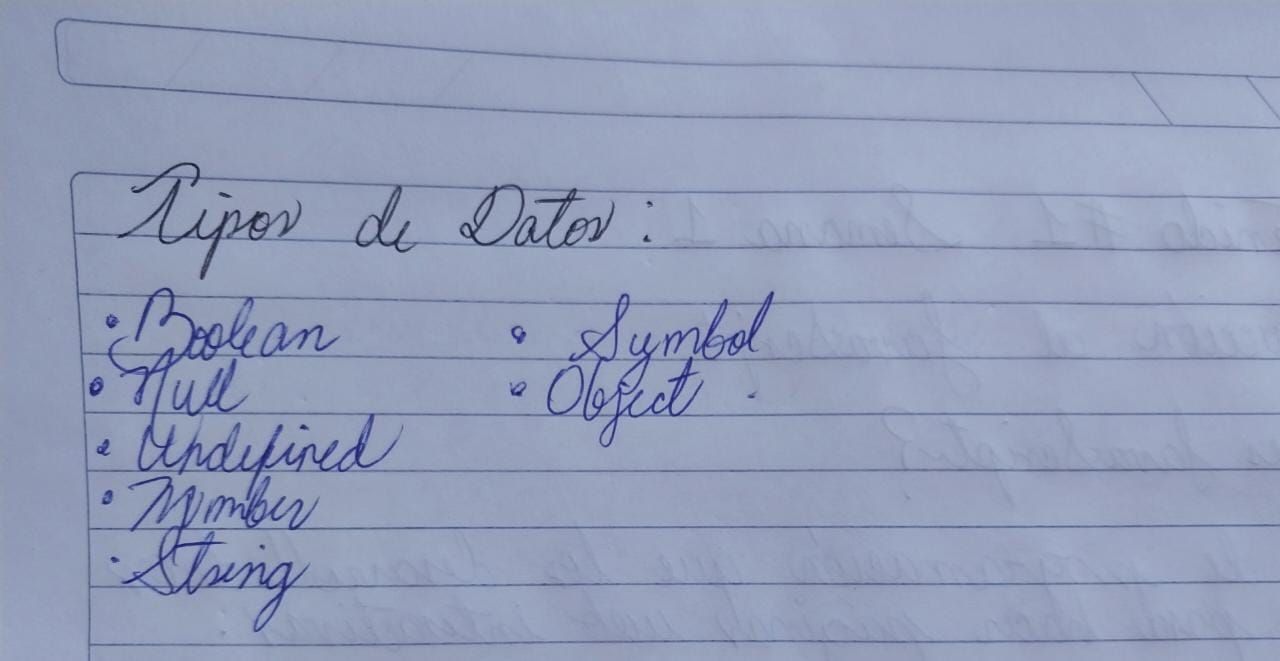 Tipos de Datos:
• Boolean
• Null
• Undefined
• Number
• String
• Symbol
• Object